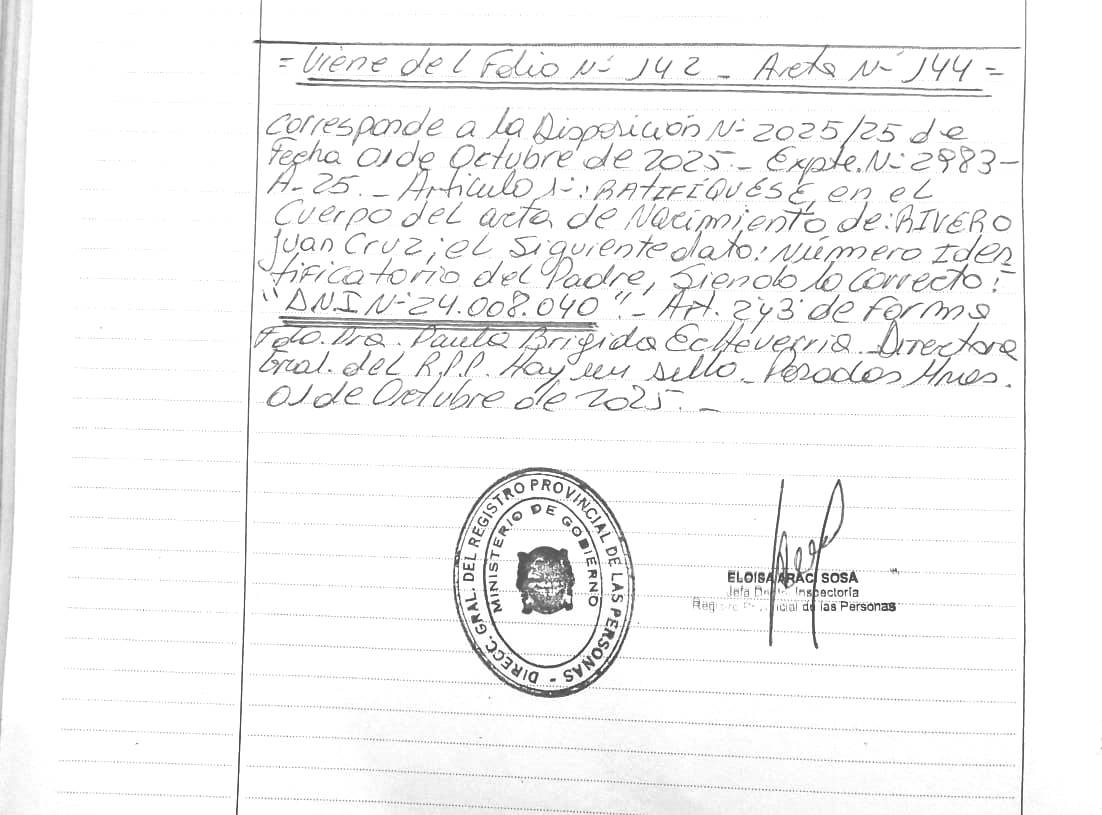 = Viene del Folio Nº 142 _ Acta Nº 144 =
Corresponde a la Disposición Nº 2025/25 de
fecha 01 de Octubre de 2025._ Expte. Nº 2983-
A-25._ Artículo 1º: RATIFÍQUESE, en el
Cuerpo del acta de Nacimiento de: RIVERO
Juan Cruz, el siguiente dato: Número Iden
tificatorio del Padre, siendo lo correcto:
"DNI Nº 24.008.040"._ Art. 2 y 3 de forma
Fdo. Dra. Paula Brigida Echeverria _ Directora
Gral. del R.P.P. Hay un sello._ Posadas Mnes.
01 de Octubre de 2025._
DIRECC. GRAL. DEL REGISTRO PROVINCIAL DE LAS PERSONAS -
MINISTERIO DE GOBIERNO
ELOISA ARAC. SOSA
Jefa Dpto. Inspectoría
Registro Provincial de las Personas